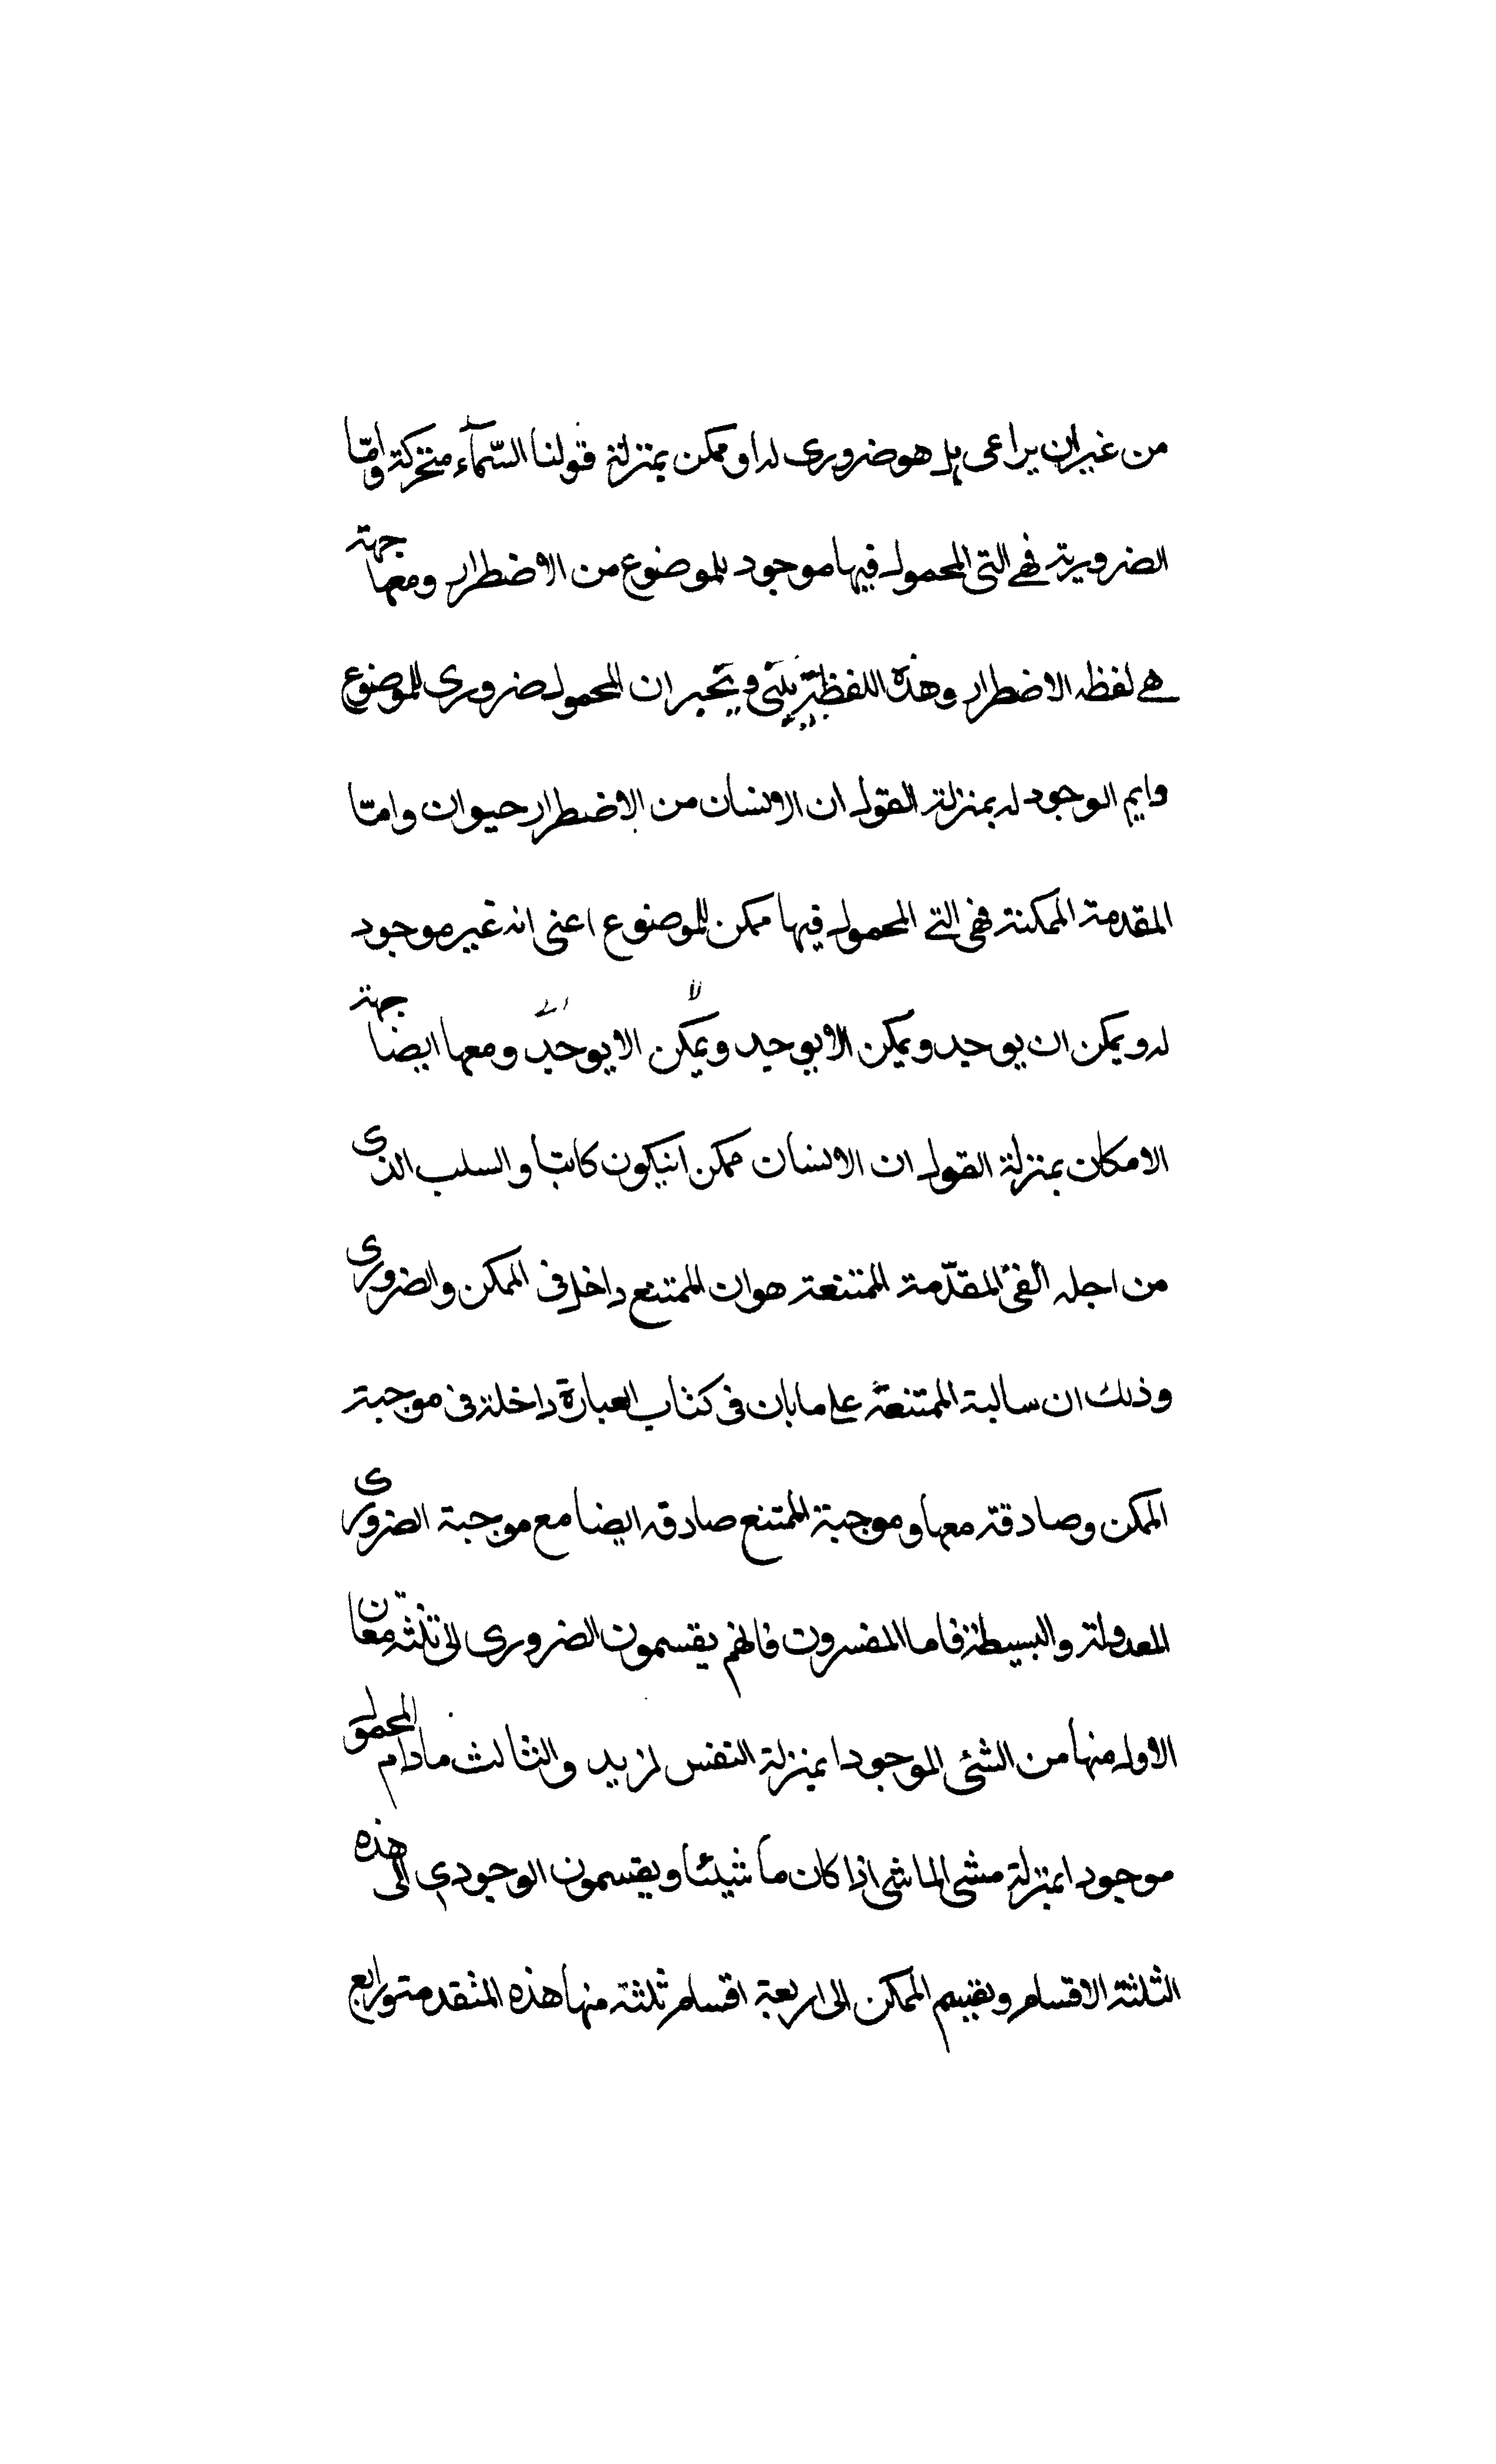 من غير ان يراعى هل هو ضرورى له او ممكن بمنزلة قولنا السّماء متحركة وامّا
الضرورية فهى التى المحمول فيها موجود للموضوع من الاضطرار ومعها جهة
هى لفظه الاضطرار وهذه اللفظة تخبر ان المحمول ضرورى للموضوع
وايم الوجود له بمنزلة القول ان الانسان من الاضطرار حيوان وامّا
المقدمة الممكنة فهى التى المحمول فيها ممكن للموضوع اعنى انه غير موجود
له ويمكن ان يوجد ويمكن الا يوجد ويمكن الا يوجد ومعها ايضا جهة
الامكان بمنزلة القول ان الانسان ممكن انيكون كاتبا والسلب الذى
من اجله المقدّمة الممتنعة هو ان الممتنع داخل فى الممكن والضرورى
وذلك ان سالبة الممتنعة على ما بان فى كتاب العبارة داخلة فى موجبة
الممكن وصادقة معها وموجبة الممتنع صادقه ايضا مع موجبة الضرورى
المعدولة والبسيطة فاما المفسرون فانهم يقسمون الضرورى الى ثلثه معان
الاول منها من الشئ الموجود ا بمنزلة النفس لزيد والثالث ما دام المحمول
موجود ا بمنزلة مشى الماشى اذا كان ما شيئا ويقسمون الوجودى الى هذه
الثلثة الاقسام وتقسيم الممكن الى اربعة اقسام ثلثة منها هذه المتقدمة ورابع